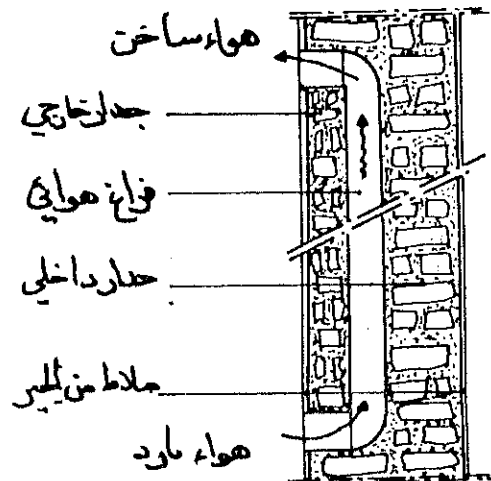 هواء ساخن
جدار خارجي
فراغ هوائي
جدار داخلي
ملاط من الجير
هواء بارد